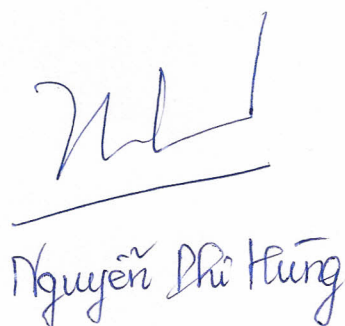 Nguyễn Phi Hùng